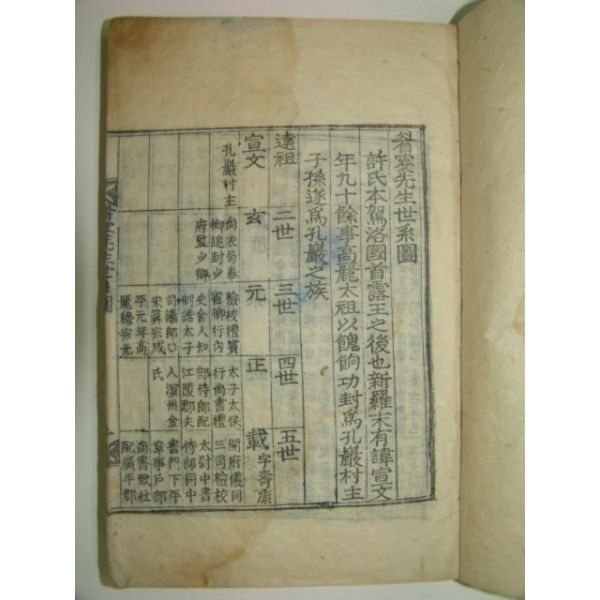 先生世系圖
許氏本駕洛國首露王之後也新羅末有諱宣文
年九十餘事高麗太祖以餽餉功封爲孔巖村主
子孫遂爲孔巖之族
遠祖
二世
三世
四世
五世
宣文
玄
元
正
載 字壽康
孔巖村主
尙衣局奉
御追封少
府監少卿
檢校禮賓
省卿行內
史舍人知
制誥太子
司議郞○
宋眞宗咸
平元年高
麗穆宗元
太子太保
行尙書禮
部侍郞配
江陵郡夫
人溟州金
氏
開府儀同
三司檢校
太尉中書
侍郞同中
書門下平
章事戶部
尙書致仕
配廣平郡